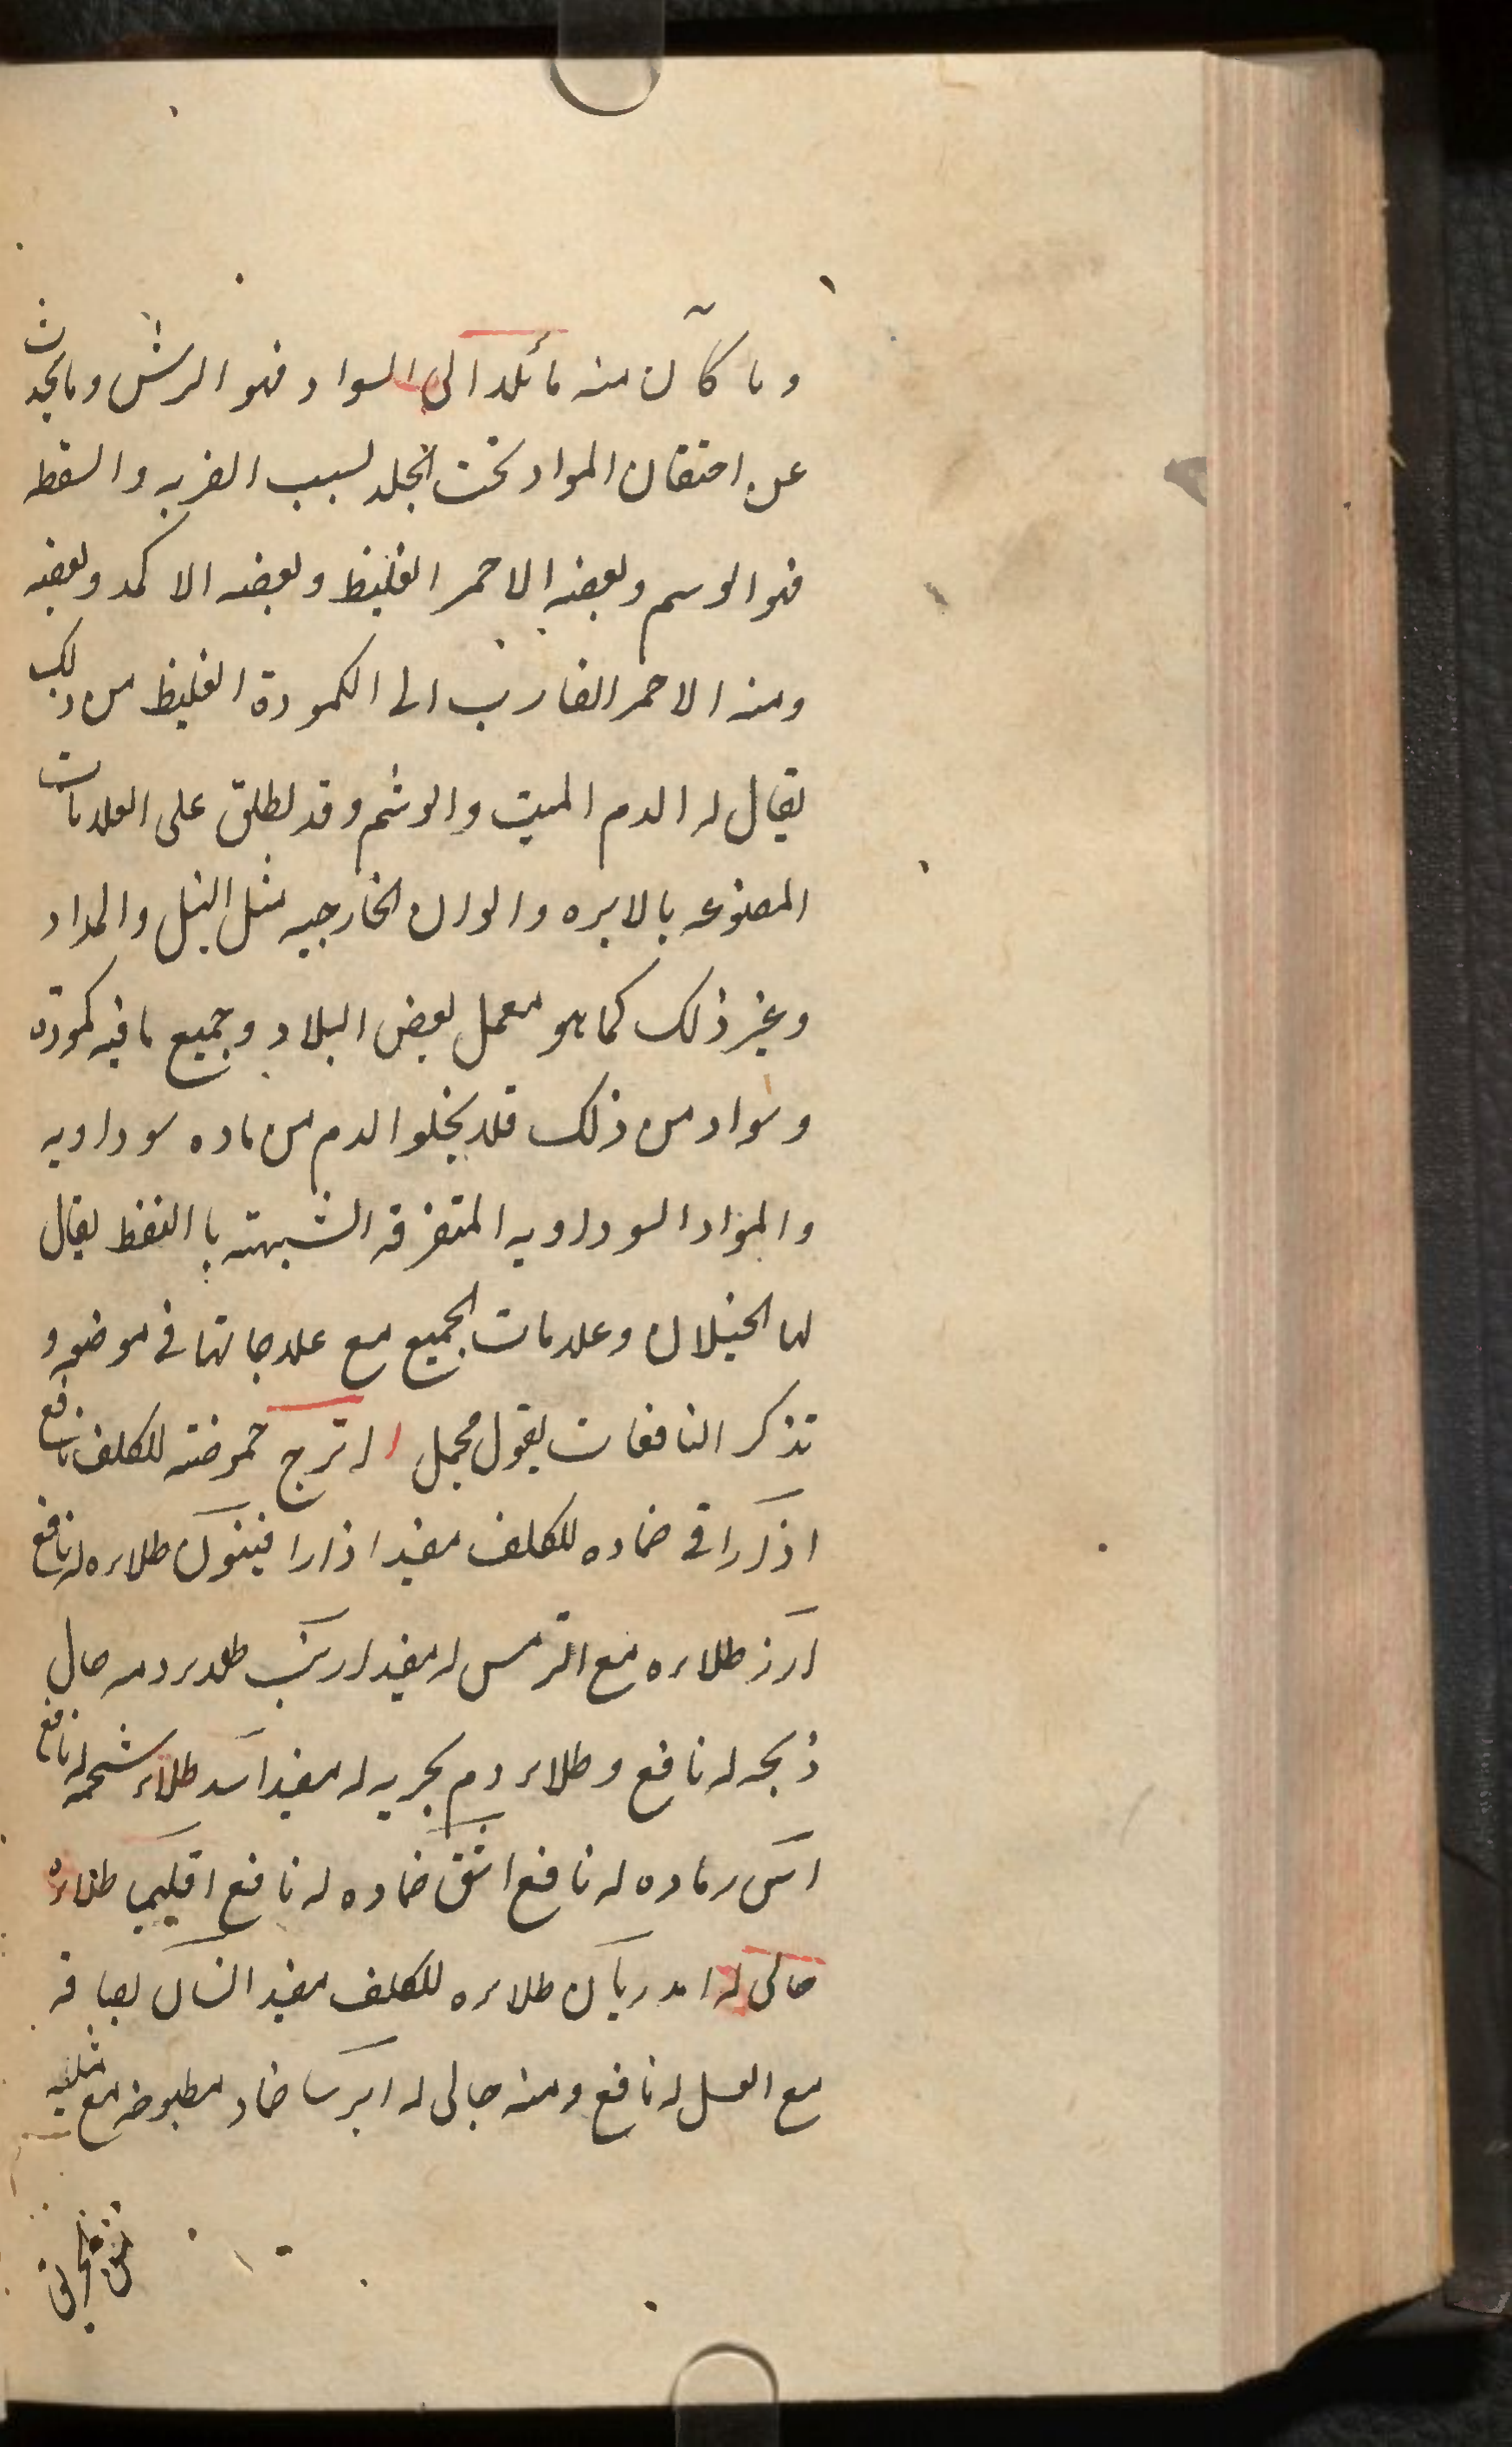 وما كان منه مائلا الى السواد فهو البرش وما يحدث
عن احتقان المواد تحت الجلد لسبب الضربه والسقطه
فهو الوسم وبعضه الاحمر الغليظ وبعضه الاكمد وبعضه
ومنه الاحمر الضارب الى الكمودة الغليظ من ذلك
يقال له الدم الميت والوشم وقد يطلق على العلامات
المصنوعه بالابره والوان الخارجيه مثل النيل والمداد
وغير ذلك كما هو معمل بعض البلاد وجميع ما فيه كمودة
وسواد من ذلك فلا يخلو الدم من ماده سوداويه
والمواد السوداويه المتفرقه الشبيهته با النقط يقال
لها الخيلان وعلامات الجميع مع علاجاتها في موضعه و
تذكر النافعات بقول مجمل اترج حموضته للكلف نافع
اذاراقى ضماده للكلف مفيد اذارا فينون طلاءه له نافع
ارز طلاءه مع الترمس له مفيد ارنب طلاء دمه حال
ذبحه له نافع وطلاء دم بحريه له مفيد اسد طلاء شحمه له نافع
آس رماده له نافع اشق ضماده له نافع اقليميا طلاءه
جالى له امدريان طلاءه للكلف مفيد انسان بصاقه
مع العسل له نافع ومنه جالى له ايرسا ضماد مطبوخه مع مثليه